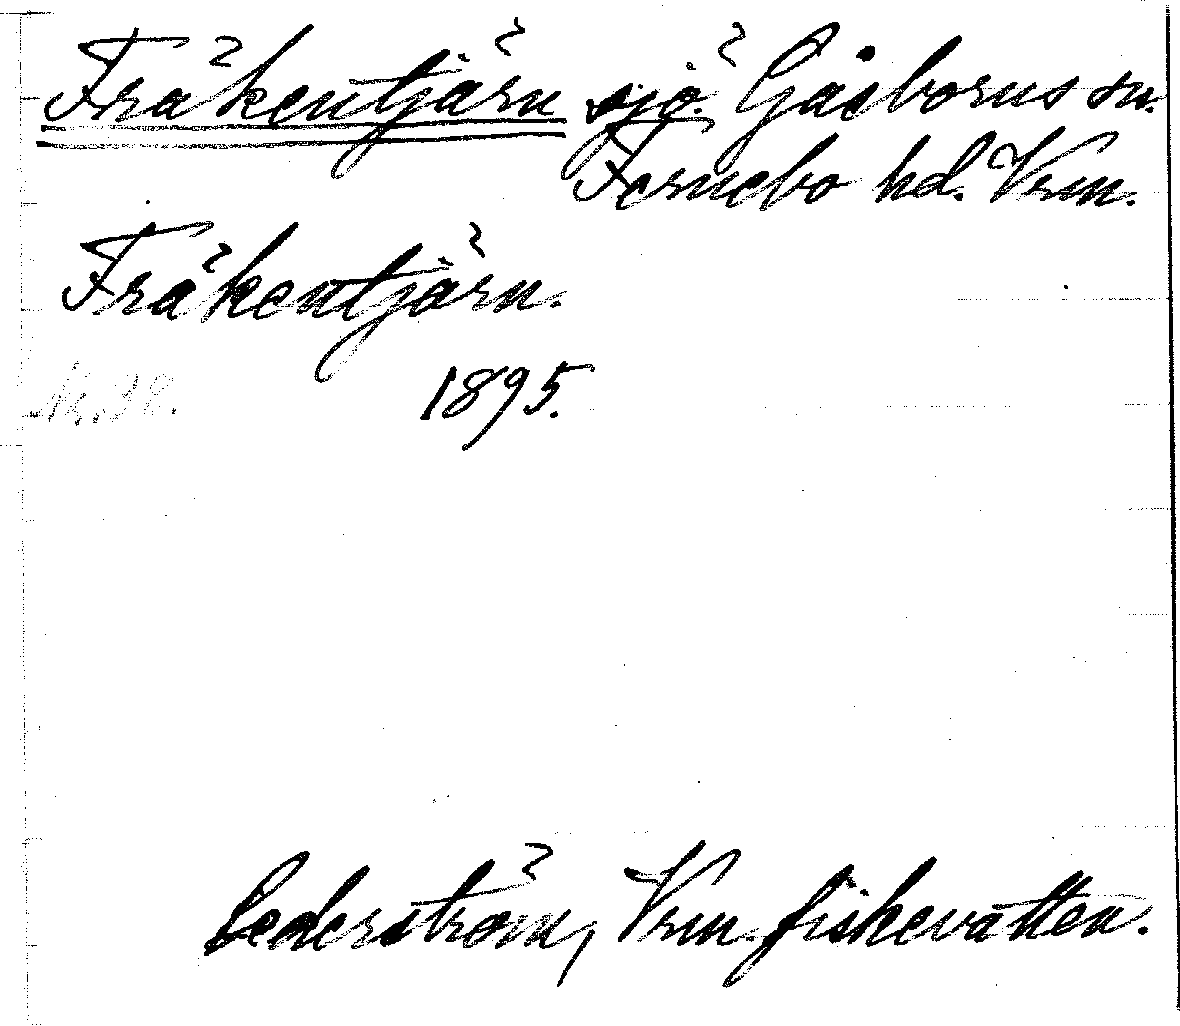 Fräkentjärn sjö. Gåsborns sn.
Fernebo hd. Vrm.
Fräkentjärn.
1895.
Cederström, Vrm. fiskevatten.